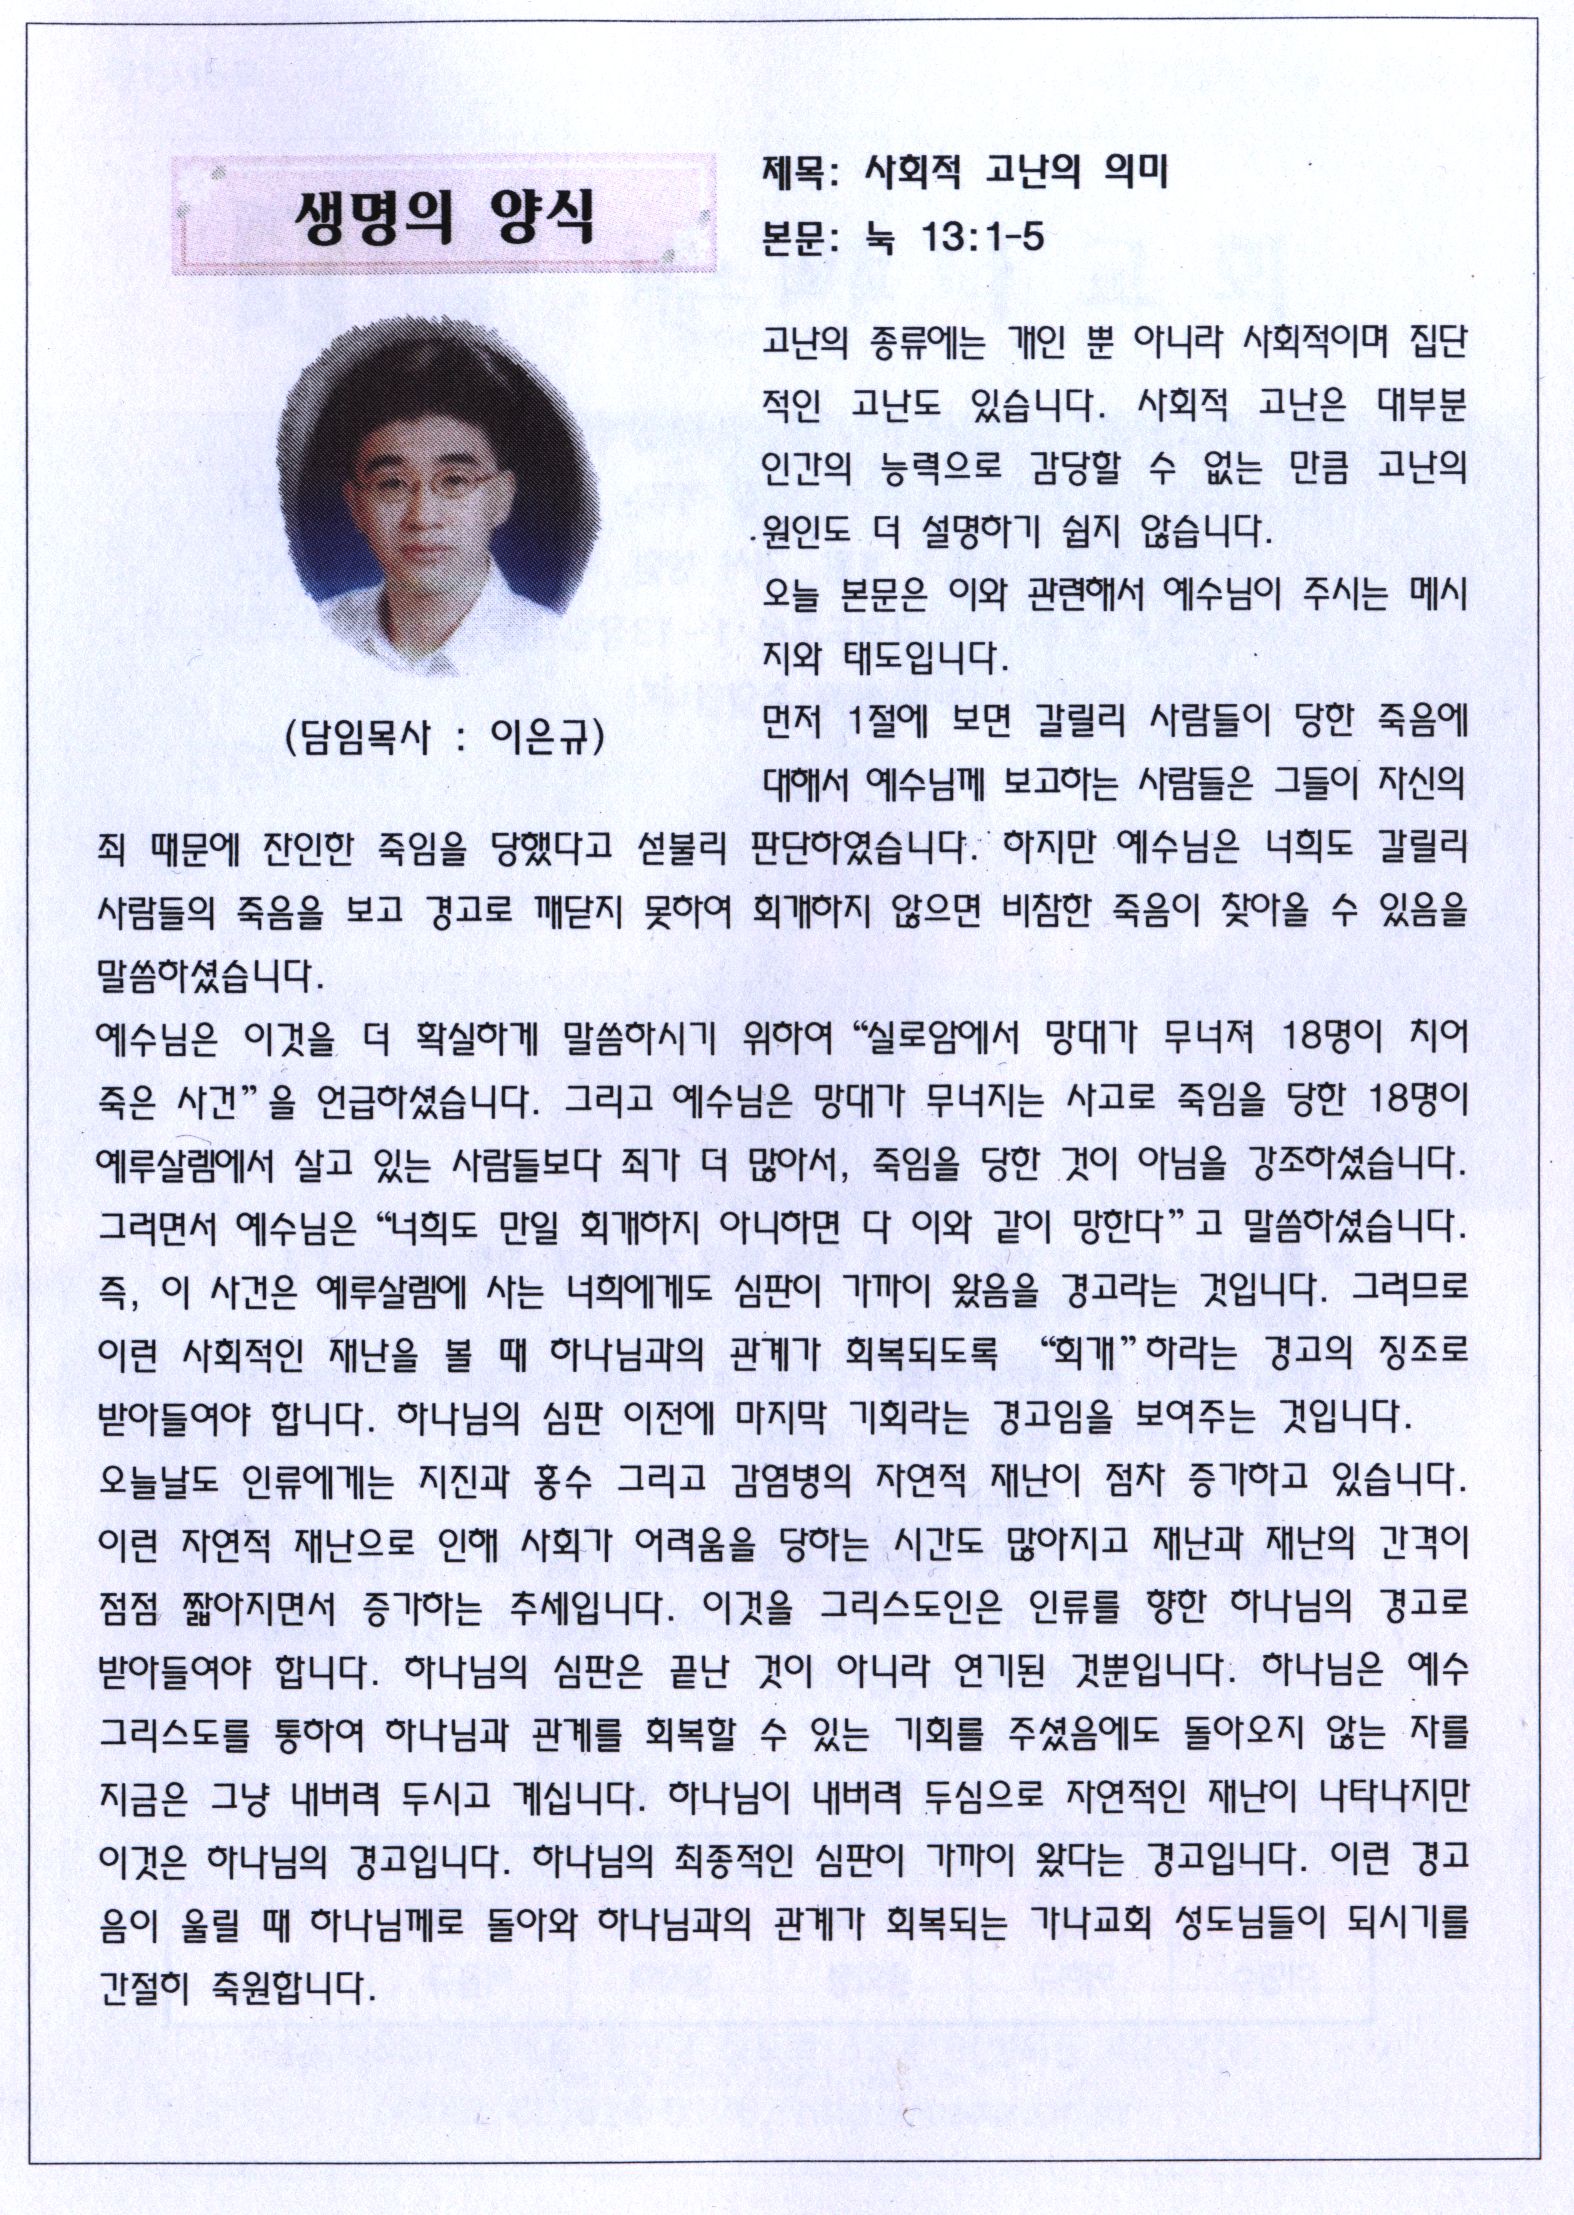 생명의 양식
제목: 사회적 고난의 의미
본문: 눅 13:1-5
(담임목사 : 이은규)
고난의 종류에는 개인 뿐 아니라 사회적이며 집단
적인 고난도 있습니다. 사회적 고난은 대부분
인간의 능력으로 감당할 수 없는 만큼 고난의
원인도 더 설명하기 쉽지 않습니다.
오늘 본문은 이와 관련해서 예수님이 주시는 메시
지와 태도입니다.
먼저 1절에 보면 갈릴리 사람들이 당한 죽음에
대해서 예수님께 보고하는 사람들은 그들이 자신의
죄 때문에 잔인한 죽임을 당했다고 섣불리 판단하였습니다. 하지만 예수님은 너희도 갈릴리
사람들의 죽음을 보고 경고로 깨닫지 못하여 회개하지 않으면 비참한 죽음이 찾아올 수 있음을
말씀하셨습니다.
예수님은 이것을 더 확실하게 말씀하시기 위하여 “실로암에서 망대가 무너져 18명이 치어
죽은 사건”을 언급하셨습니다. 그리고 예수님은 망대가 무너지는 사고로 죽임을 당한 18명이
예루살렘에서 살고 있는 사람들보다 죄가 더 많아서, 죽임을 당한 것이 아님을 강조하셨습니다.
그러면서 예수님은 “너희도 만일 회개하지 아니하면 다 이와 같이 망한다”고 말씀하셨습니다.
즉, 이 사건은 예루살렘에 사는 너희에게도 심판이 가까이 왔음을 경고라는 것입니다. 그러므로
이런 사회적인 재난을 볼 때 하나님과의 관계가 회복되도록 “회개”하라는 경고의 징조로
받아들여야 합니다. 하나님의 심판 이전에 마지막 기회라는 경고임을 보여주는 것입니다.
오늘날도 인류에게는 지진과 홍수 그리고 감염병의 자연적 재난이 점차 증가하고 있습니다.
이런 자연적 재난으로 인해 사회가 어려움을 당하는 시간도 많아지고 재난과 재난의 간격이
점점 짧아지면서 증가하는 추세입니다. 이것을 그리스도인은 인류를 향한 하나님의 경고로
받아들여야 합니다. 하나님의 심판은 끝난 것이 아니라 연기된 것뿐입니다. 하나님은 예수
그리스도를 통하여 하나님과 관계를 회복할 수 있는 기회를 주셨음에도 돌아오지 않는 자를
지금은 그냥 내버려 두시고 계십니다. 하나님이 내버려 두심으로 자연적인 재난이 나타나지만
이것은 하나님의 경고입니다. 하나님의 최종적인 심판이 가까이 왔다는 경고입니다. 이런 경고
음이 울릴 때 하나님께로 돌아와 하나님과의 관계가 회복되는 가나교회 성도님들이 되시기를
간절히 축원합니다.